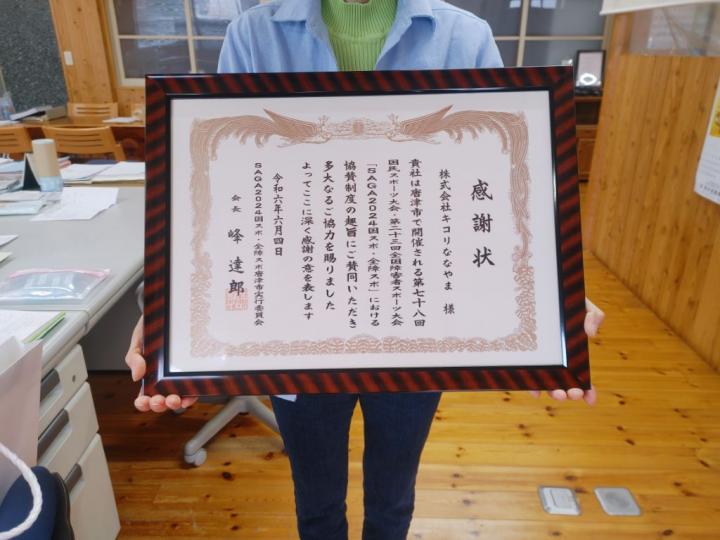 感謝状
株式会社キコリななやま 様
貴社は唐津市で開催される第七十八回
国民スポーツ大会・第二十三回全国障害者スポーツ大会
「SAGA2024国スポ・全障スポ」における
協賛制度の趣旨にご賛同いただき
多大なるご協力を賜りました
よってここに深く感謝の意を表します
令和六年六月四日
SAGA2024国スポ・全障スポ唐津市実行委員会
会長 峰達郎